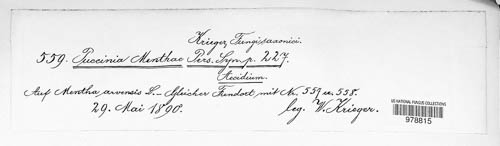 Krieger, Fungi saxonici.
559. Puccinia Menthae Pers. Syn. p. 227.
Aecidium.
Auf Mentha arvensis L. – Gleicher Fundort mit No. 557 u. 558.
29. Mai 1890. leg. W. Krieger.
US NATIONAL FUNGUS COLLECTIONS
978815